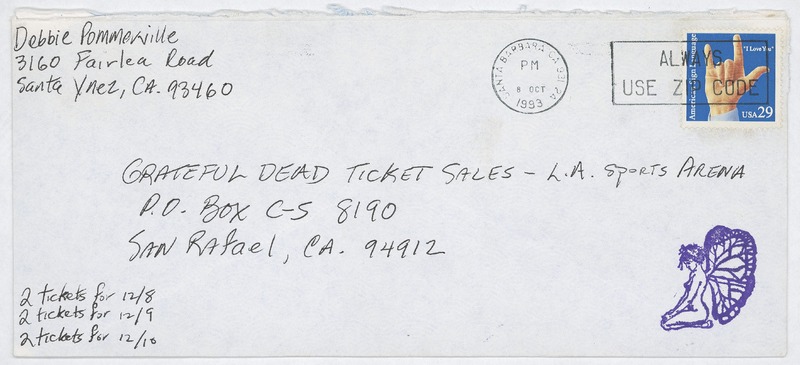 Debbie Pommerville
3160 Fairlea Road
Santa Ynez, CA. 93460
SANTA BARBARA CA 931
PM
8 OCT
1993
ALWAYS
USE ZIP CODE
American Sign Language
"I Love You"
USA 29
GRATEFUL DEAD TICKET SALES - L.A. Sports ARENA
P.O. Box C-S 8190
SAN Rafael, CA. 94912
2 tickets for 12/8
2 tickets for 12/9
2 tickets for 12/10